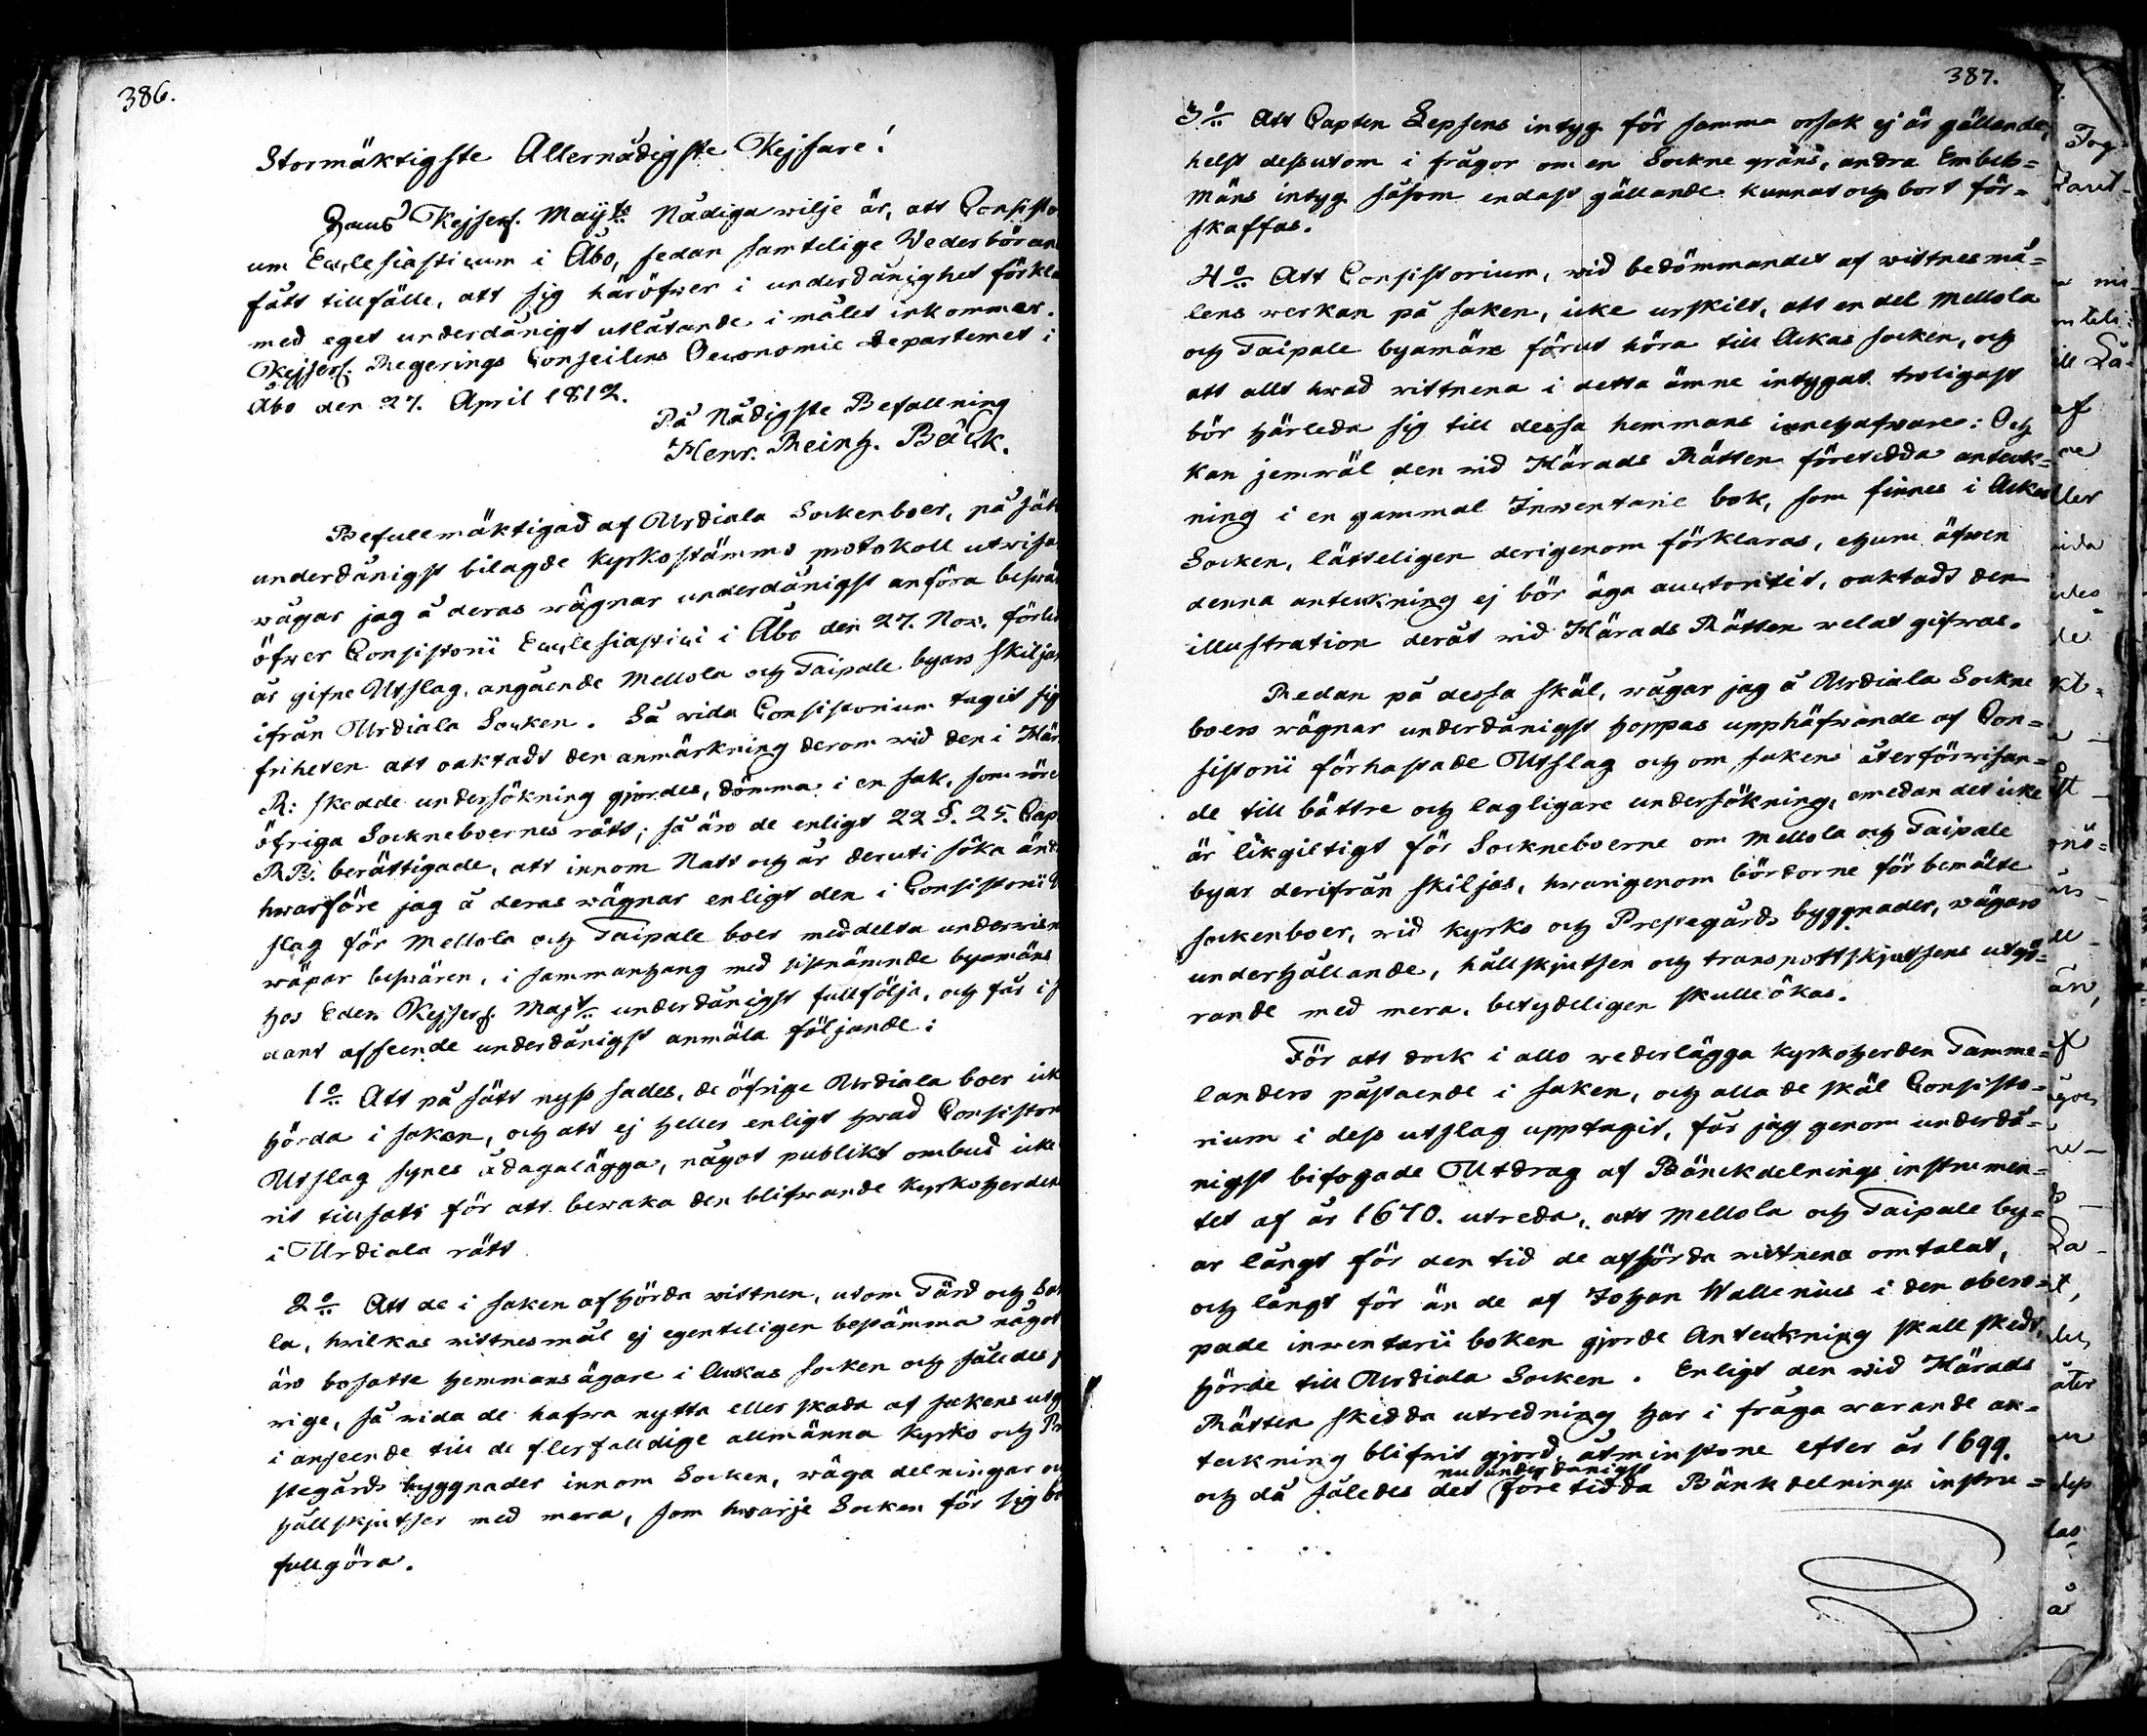 386.
Stormäktigste Allernådigste Kejsare!
Hans Kejserl. Maij:ts Nådiga wilje är, att Consisto
um Ecclesiasticum i Åbo, sedan samtelige Wederböran
fått tillfälle, att sig häröfwer i underdånighet förkla
med eget underdånigt utlåtande i målet inkommer.
Kejserl. Regerings Conseilens Oeconomie Departemet i
Åbo den 27. April 1812.
På Nådigste Befallning
Henr. Reinh. Bäck.
Befullmäktigad af Urdiala Sockenboer, på sätt
underdånigst bilagde kyrkostämmo protokoll utwisa
wågar jag å deras wägnar underdånigst anföra beswär
öfwer Consistorii Ecclesiastici i Åbo den 27. Nov. förle
år gifne Utslag, angående Mellola och Taipale byars skiljan
ifrån Urdiala Socken. Så wida Consistorium tagit sig
friheten att oaktadt den anmärkning derom wid den i Här
R: skedde undersökning gjordes, dömma i en sak, som röre
öfriga Sockneboernes rätt; så äro de enligt 22 §. 25. Cap
R B. berättigade, att innom Natt och år deruti söka änd
hwarföre jag å deras wägnar enligt den i Consistorii U
slag för Mellola och Taipale boer meddelta underwisn
wågar beswären, i sammanhang med sistnämnde byamäns
hos Eder Kejserl. Majt: underdånigst fullfölja, och får i s
dant afseende underdånigst anmäla följande:
1:o Att på sätt nyss sades, de öfrige Urdiala boer ick
hörda i saken, och att ej heller enligt hwad Consistor
Utslag synes ådagalägga, något publikt ombud icke
rit tillsatt för att bewaka den blifwande kyrkoherden
i Urdiala rätt
2:o Att de i saken afhörda wittnen, utom Tärd och Sat
la, hwilkas wittnesmål ej egenteligen bestämma något
äro bosatte hemmans ägare i Ackas socken och således j
wige, så wida de hafwa nytta eller skada af sakens utg
i anseende till de flerfalldige allmänna kyrko och Pr
stegårds byggnader innom Socken, wäga delningar oc
hållskjutser med mera, som hwarje Socken för sig bö
fullgöra.
387.
3:o Att Capten Lepsens intyg för samma orsak ej är gällande,
helst dessutom i frågor om en Sockne gräns, andra Embets=
mäns intyg såsom endast gällande kunnat och bort för=
skaffas.
4:o Att Consistorium, wid bedömmandet af wittnesmå=
lens werkan på saken, icke urskilt, att en del Mellola
och Taipale byamän förut höra till Ackas socken, och
att allt hwad wittnena i detta ämne intygat troligast
bör härleda sig till dessa hemmans innehafware: Och
kan jemwäl den wid Härads Rätten företedda anteck=
ning i en gammal Inventarie bok, som finnes i Ackas
Socken, lätteligen derigenom förklaras, ehuru äfwen
denna anteckning ej bör äga auctoritet, oaktadt den
illustration deråt wid Härads Rätten welat gifwas.
Redan på dessa skäl, wågar jag å Urdiala Sockne
boers wägnar underdånigst hoppas upphäfwande af Con=
sistorii förhastade Utslag och om sakens återförwisan=
de till bättre och lagligare undersökning, emedan det icke
är likgiltigt för Sockneboerne om Mellola och Taipale
byar derifrån skiljas, hwarigenom bördorne för bemälte
sockenboer, wid kyrko och Prestegårds byggnader, wägars
underhållande, hållskjutsen och transportskjutsens utgö=
rande med mera, betydeligen skulle ökas.
För att dock i allo wederlägga kyrkoherden Tamme=
landers påstaende i saken, och alla de skäl Consisto=
rium i dess utslag upptagit, får jag genom underdå=
nigst bifogade Utdrag af Bänckdelnings instrumen=
tet af år 1670. utreda, att Mellola och Taipale by=
ar långt för den tid de afhörda wittnena omtalat,
och långt för än de af Johan Wallenius i den aberο=
pade inwentarii boken gjorde Anteckning skall skedt,
hörde till Urdiala Socken. Enligt den wid Härads
Rätten skedda utredning har i fråga warande an=
teckning blifwit gjord, åtminstone efter år 1699.
nu underdånigst
och då således det företedda Bänkdelnings instru=